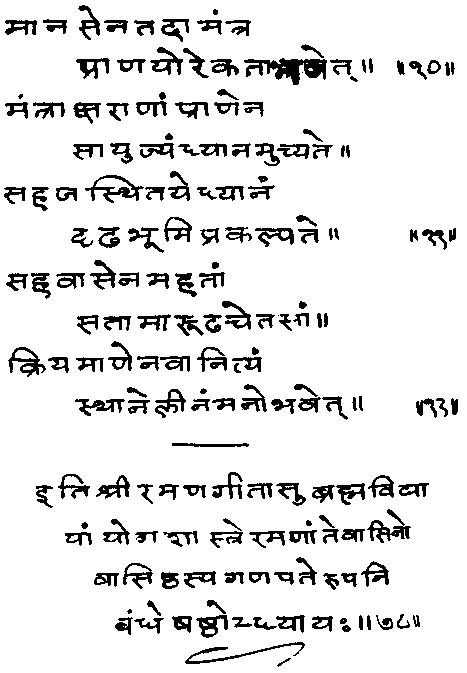 मानसेन तदा मंत्र
प्राणयोरेकता भवेत्॥ ॥१०॥
मंत्राक्षराणां प्राणेन
सायुज्यं ध्यानमुच्यते॥
सहजस्थितये ध्यानं
दृढभूमिप्रकल्पते॥ ॥११॥
सहवासेन महतां
सतामारूढचेतसां॥
क्रियमाणेन वा नित्यं
स्थाने लीनं मनो भवेत्॥ ॥१२॥
इति श्रीरमणगीतासु ब्रह्मविद्या
यां योगशास्त्रे रमणांतेवासिनो
वासिष्ठस्य गणपतेरुपनि
बंधे षष्ठोऽध्यायः॥७८॥